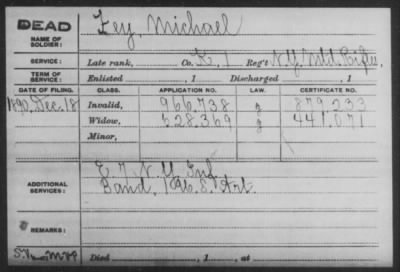 DEAD
NAME OF SOLDIER: Zey, Michael
SERVICE: Late rank, Co. K, 1 Reg't N.Y. Mtd. Rifles,
TERM OF SERVICE: Enlisted , 1 Discharged , 1
DATE OF FILING. CLASS. APPLICATION NO. LAW. CERTIFICATE NO.
1890, Dec. 18 Invalid, 966,738 g 879,233
Widow, 528,369 g 441,071
Minor,
ADDITIONAL SERVICES: E. 7, N.Y. Inf.
Band, 1 U.S. Art.
REMARKS:
Died , 1 , at